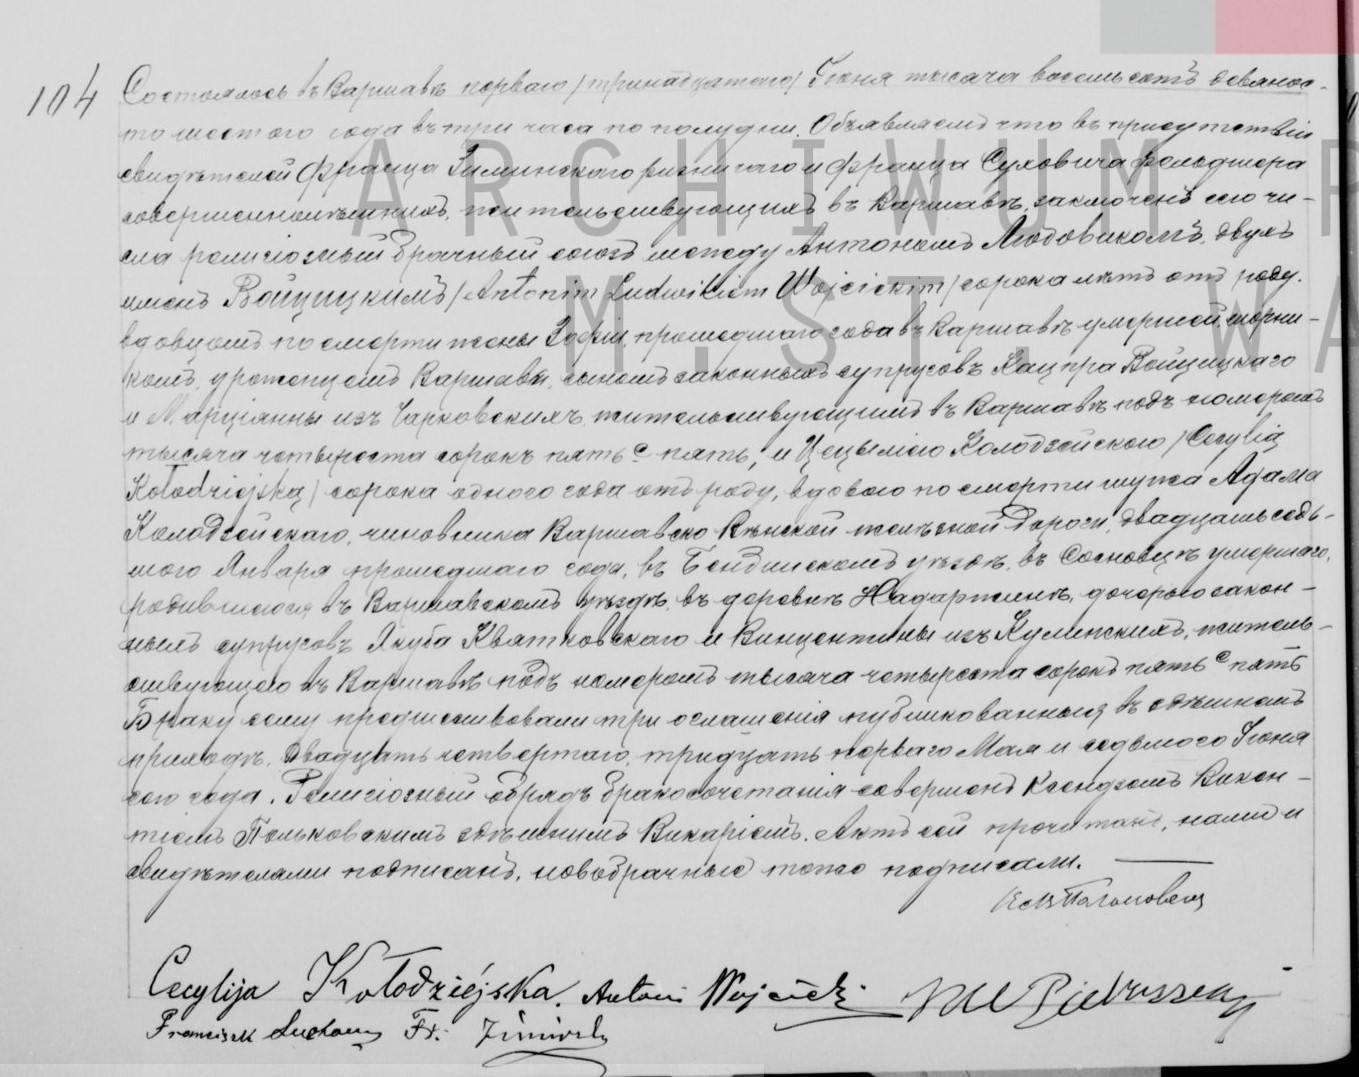 104
Состоялось въ Варшавѣ перваго /тринадцатаго/ Іюня тысяча восемьсотъ девянос-
то шестого года въ три часа по полудни. Объявляемъ что въ присутствіи
свидѣтелей Франца Зиминскаго резничаго и Франца Суховича фельдшера
совершеннолѣтнихъ, жительствующихъ въ Варшавѣ, заключенъ сего чи-
сла религіозный брачный союзъ между Антономъ Людовикомъ, двухъ
именъ Войцицкимъ /Antonim Ludwikiem Wojcickim/ сорока лѣтъ отъ роду.
вдовцомъ по смерти жены Зофіи, прошедшаго года въ Варшавѣ умершей, шорни-
комъ, уроженцемъ Варшавы, сыномъ законныхъ супруговъ Кацпра Войцицкаго
и Марціянны изъ Чарковскихъ, жительствующимъ въ Варшавѣ подъ номеромъ
тысяча четыреста сорокъ пять с пять, и Цецылією Колодзейскою /Cecylią
Kołodziejską/ сорока одного года отъ роду, вдовою по смерти мужа Адама
Колодзейскаго, чиновника Варшавско Вѣнской желѣзной дороги, двадцать седь-
мого Января прошедшаго года, въ Бендинскомъ уѣздѣ, въ Сосновцѣ умершаго,
родившеюся въ Варшавскомъ уѣздѣ, въ деревнѣ Надаржинѣ, дочерью закон-
ныхъ супруговъ Якуба Квятковскаго и Винцентины изъ Кулинскихъ, житель-
ствующею въ Варшавѣ подъ номеромъ тысяча четыреста сорокъ пять с пять
Браку сему предшествовали три оглашенія публикованныя въ здѣшнемъ
приходѣ, двадцать четвертаго, тридцать перваго Мая и седьмого Іюня
сего года. Религіозный обрядъ бракосочетанія совершенъ Ксендзомъ Викен-
тіемъ Польковскимъ здѣшнимъ Викаріемъ. Актъ сей прочитанъ, нами и
свидѣтелями подписанъ, новобрачные тоже подписали.
Cecylija Kołodziéjska. Antoni Wojcicki
Franciszek Fr:
ARCHIWUM P
M. ST. WA